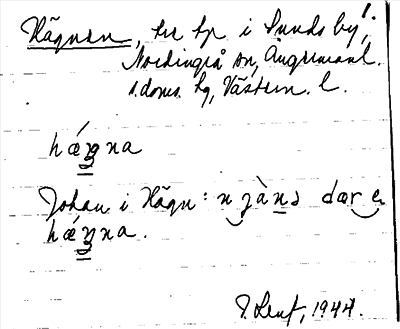 Hägnen, tre tp i Sundsby!
Nordingrå sn, Ångermanl.
s. doms. hg, Västern. l.
hǽŋna
Johan i Hägn: n jàns dær e
hǽŋna.
1944.